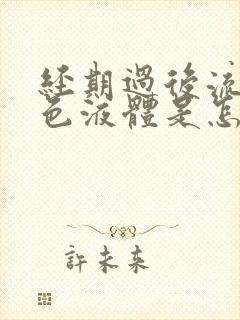 經期過後流
色液體是怎
許未來